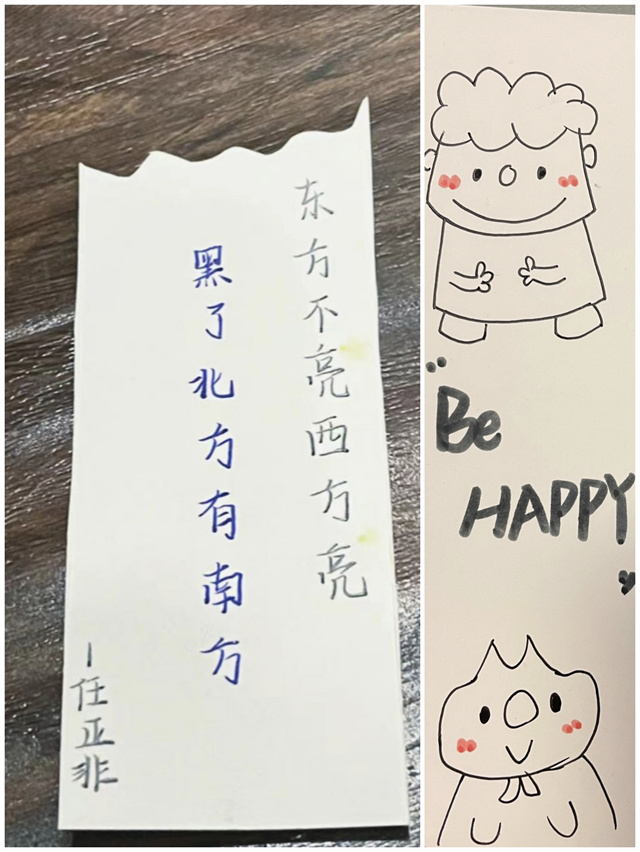 东方不亮西方亮
黑了北方有南方
-任亚非
Be
HAPPY